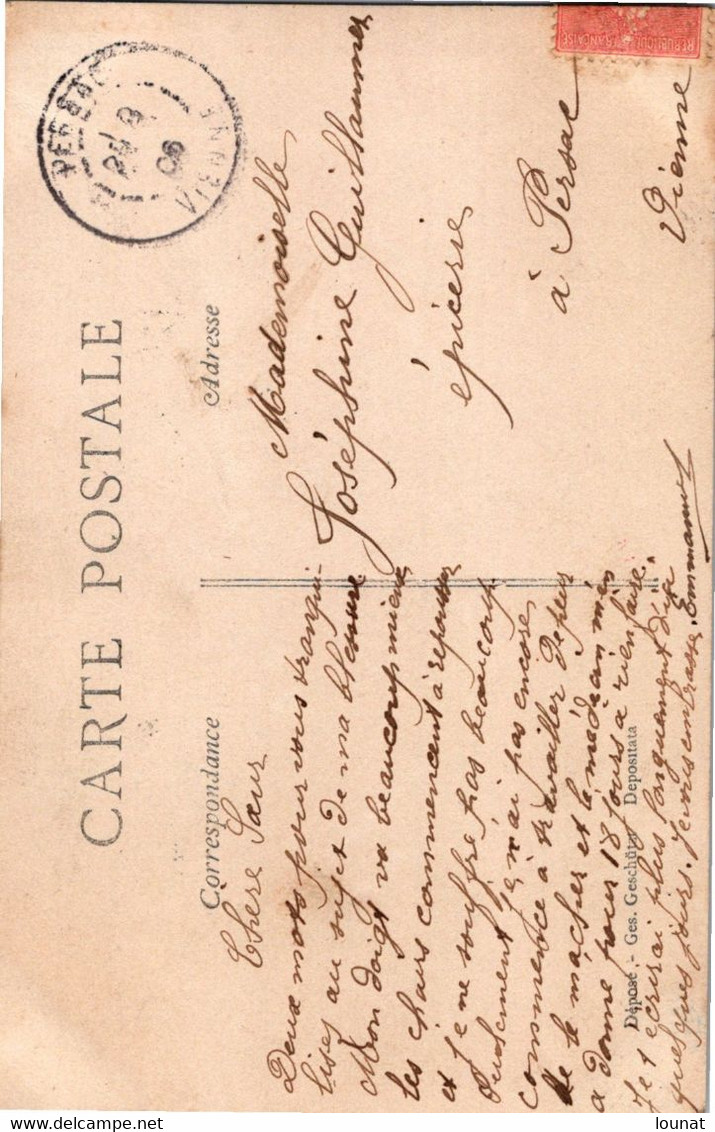 CARTE POSTALE
Correspondance
Adresse
Chère Sœur
Deux mots pour vous tranqui-
liser au sujet de ma blessure
Mon doigt va beaucoup mieux
les chairs commencent à repousser
et je ne souffre pas beaucoup
Seulement je n'ai pas encore
commencé à travailler depuis
et le médecin m'en
a donné pour 18 jours à rien faire.
Je t'écrirai plus longuement d'ici
quelques jours. Je vous embrasse. Emmanuel
Mademoiselle
Joséphine Guillaumet
épicerie
à Persac
Vienne
Déposé. - Ges. Geschützt Depositata
PERSAC
VIENNE
06
REPUBLIQUE FRANÇAISE
lounat